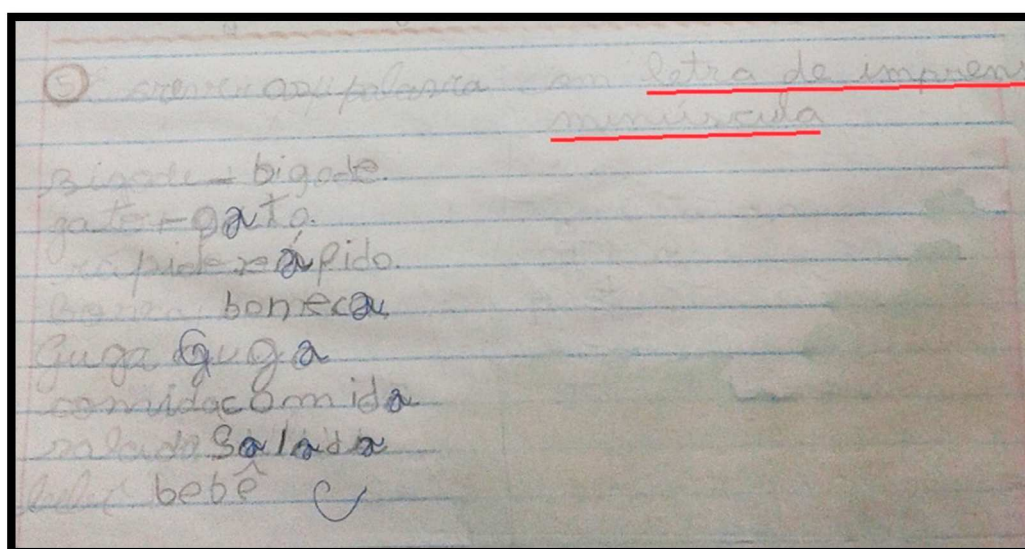 5 escreva as palavra com letra de imprens
minúscula
Bigode - bigode.
gato - gato.
rápido rápido.
Boneca boneca
Guga Guga
comida comida
salada Salada
bebê bebê